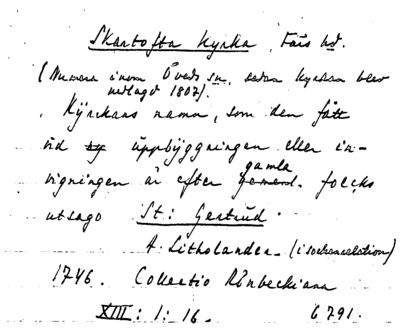 Skartofta Kyrka, Färs hd.
(Numera inom Öveds sn, sedan kyrkan blev
nedlagd 1807).
Kÿrckans namn, som den fått
vid uppbÿggningen eller in-
gamla
vigningen är efter folcks
utsago St: Gertrud.
A. Litholander. (i sockenrelation)
1746. Collectio Rönbeckiana
XIII: 1: 16. 6791.